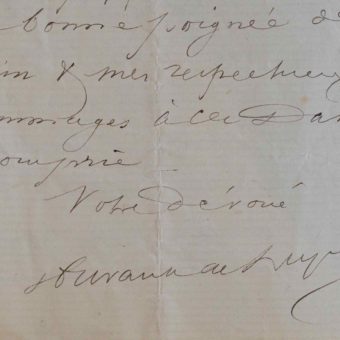 bonne poignée d
in & mes respectueu
ommages à ces Da
omprie
Votre dévoué